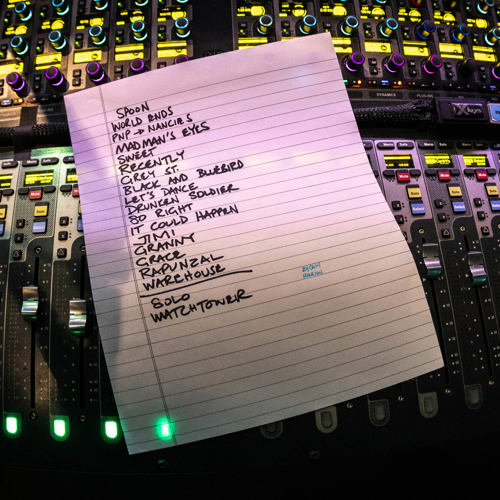 SPOON
WORLD ENDS
PNP → NANCIES
MADMAN'S EYES
SWEET
RECENTLY
GREY ST.
BLACK AND BLUEBIRD
LET'S DANCE
DRUNKEN SOLDIER
SO RIGHT
IT COULD HAPPEN
JIMI
GRANNY
GRACE
RAPUNZAL
WAREHOUSE
SOLO
WATCHTOWER
DYNAMICS
PLUG-INS